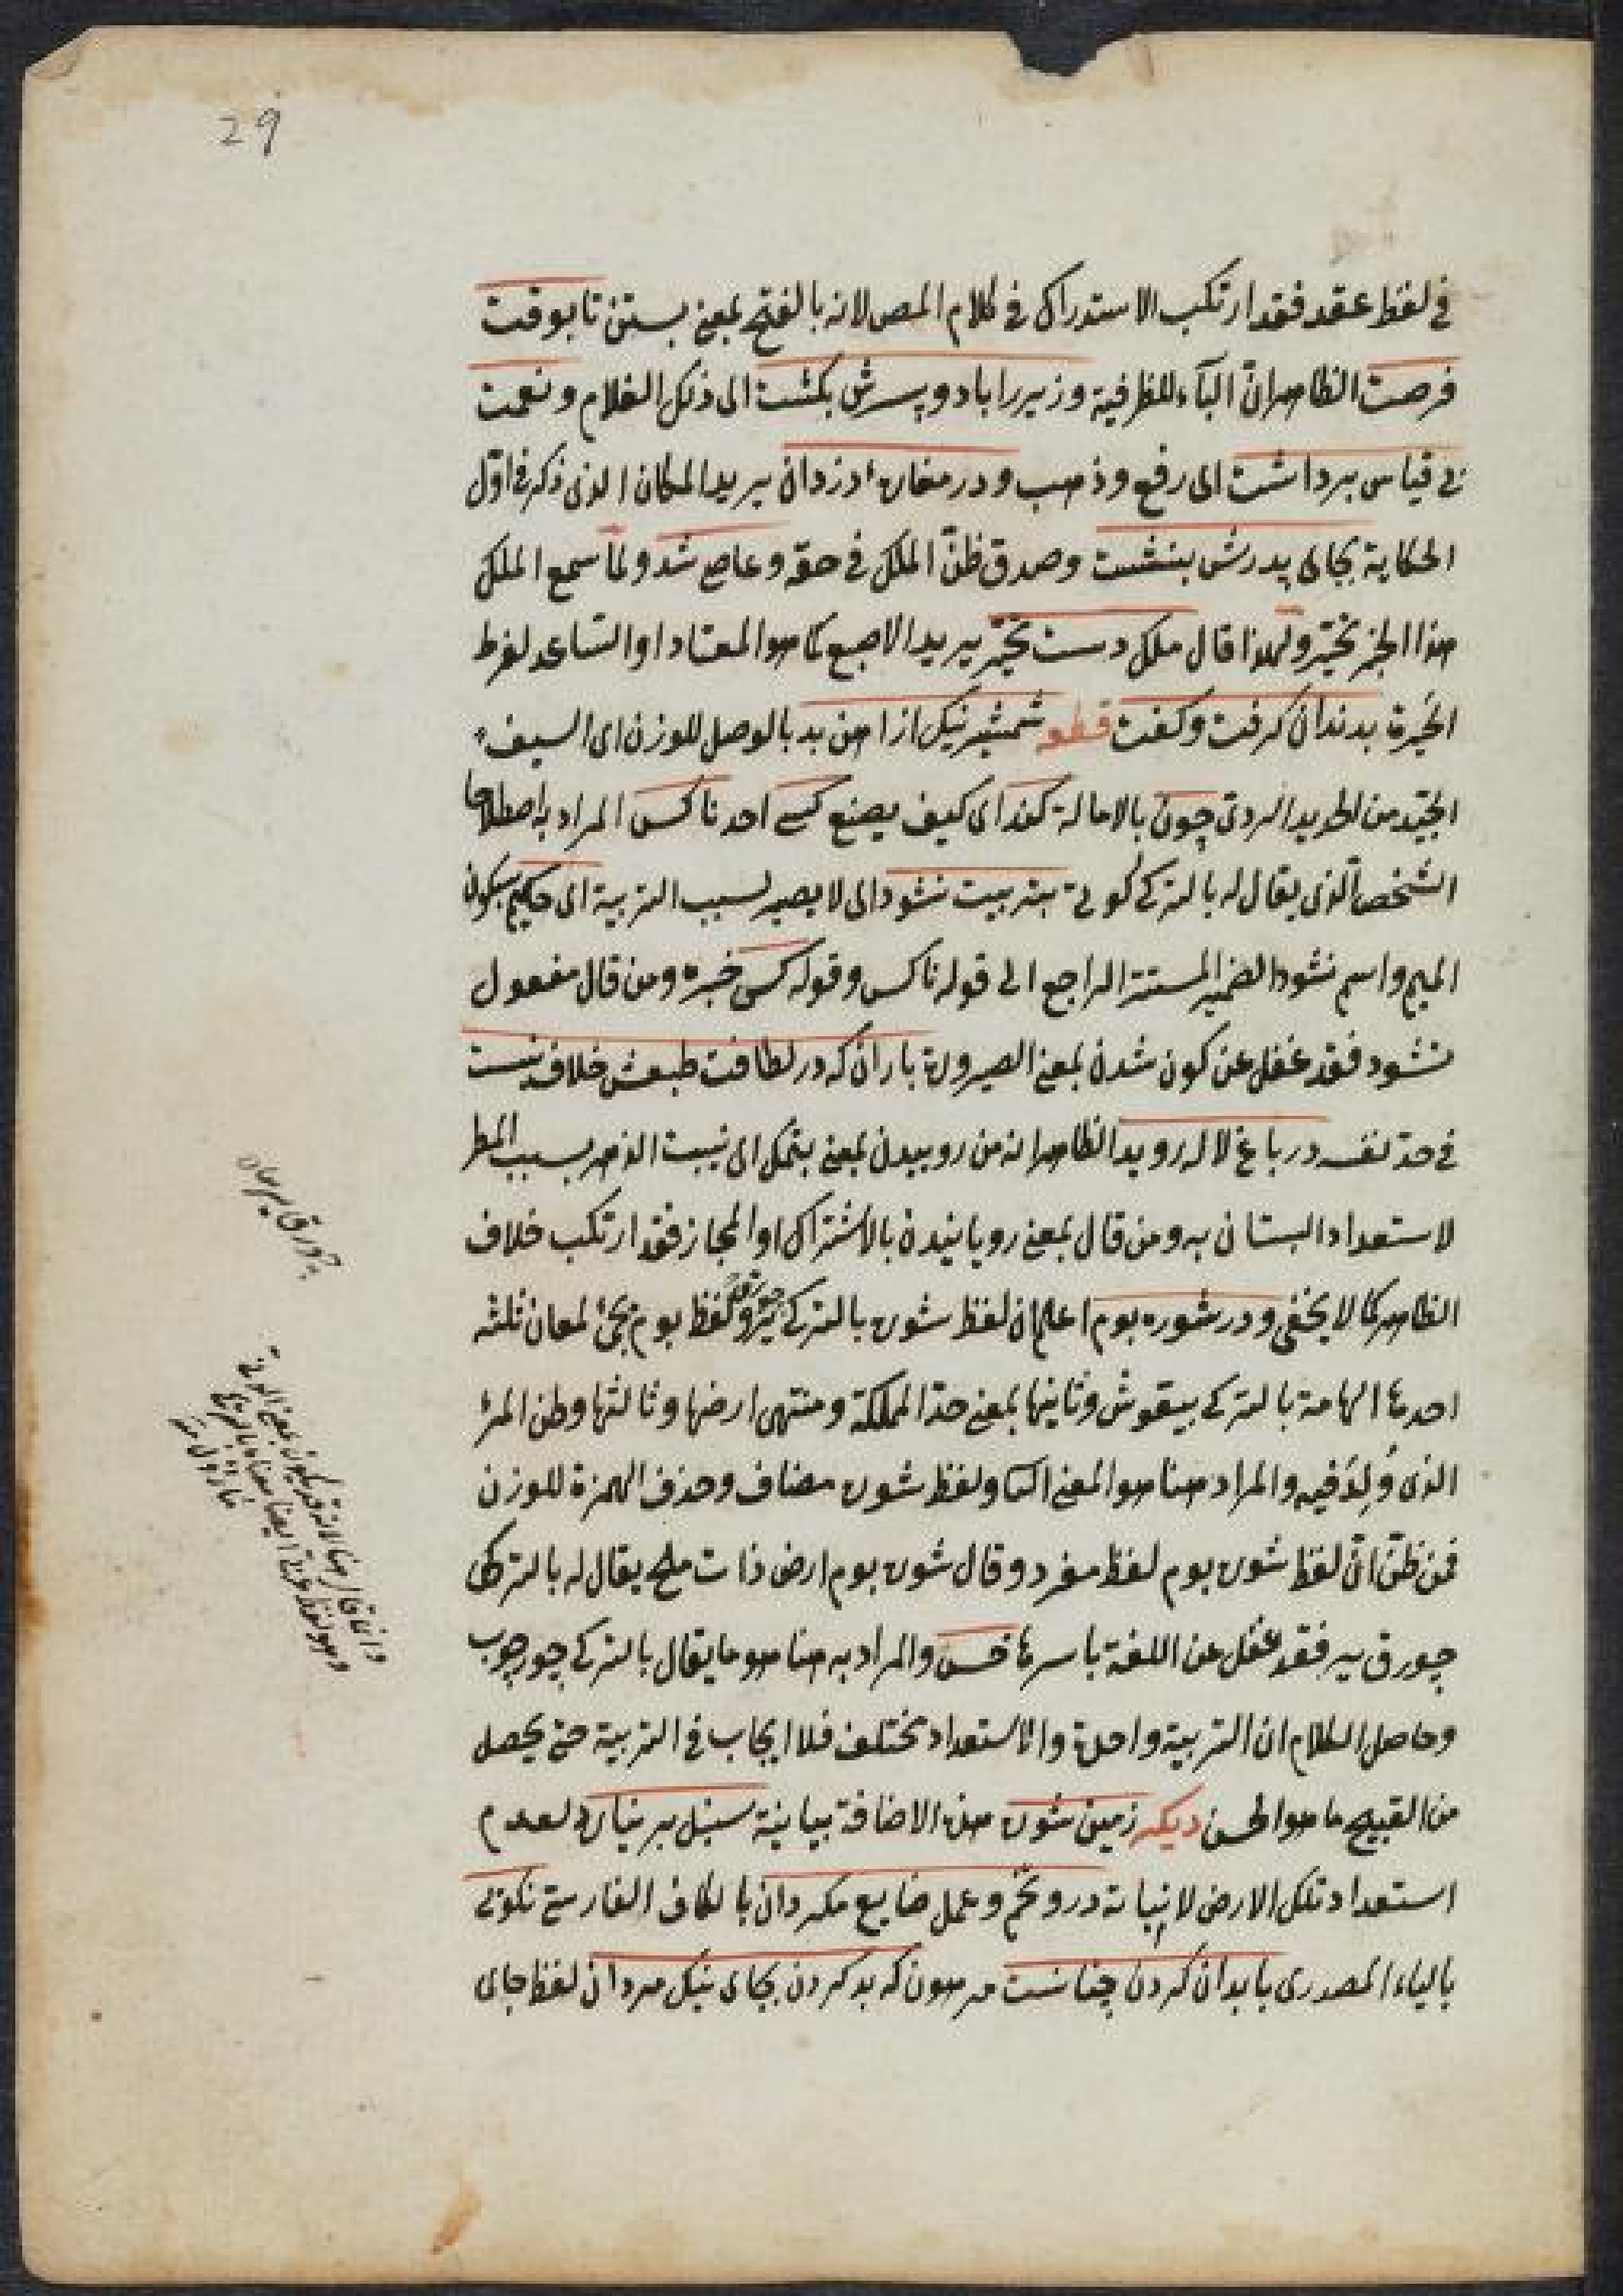 29
فى لفظ عقد فقد ارتكب الاستدراك فى كلام المص لانه بالفتح بمعنى بستن تا بوقت
فرصت الظاهر انّ الباء للظرفية وزير را با دو پسرش بكشت الى ذلك الغلام ونعمت
بى قياس برداشت اى رفع وذهب ودر مغاره دزدان يريد المكان الذى ذكر فى اوّل
الحكاية بجاى پدرش بنشست وصدق ظنّ الملك فى حقه وعاصى شد ولمّا سمع الملك
هذا الخبر تحيّر ولهذا قال ملك دست تحيّر يريد الاصبع كما هو المعتاد او الساعد لفرط
الحيرة بدندان كرفت وكفت قطعه شمشير نيك از آهن بد بالوصل للوزن اى السيف
الجيّد من الحديد الردى چون بالامالة كند اى كيف يصنع كسى احد ناكس المراد به اصطلاحا
الشخص الّذى يقال له بالتركى كوتى بتربيت نشود اى لا يصير بسبب التربية اى حكيم بسكون
الميم واسم نشود الضمير المستتر الراجع الى قوله ناكس وقوله كسى خبره ومن قال مفعول
نشود فقد غفل عن كون شدن بمعنى الصيرورة باران كه در لطافت طبعش خلاف نيست
فى حدّ نفسه در باغ لاله رويد الظاهر انه من روييدن بمعنى بتمك اى نبيت الزهر بسبب المطر
لاستعداد البستان به ومن قال بمعنى رويانيدن بالاشتراك او المجاز فقد ارتكب خلاف
الظاهر كما لا يخفى ودر شوره بوم اعلم ان لفظ شوره بالتركى چورق ير ولفظ بوم يجئ لمعان ثلثه
احدها الهامة بالتركى بيقوش وثانيها بمعنى حدّ المملكة ومنتهى ارضها وثالثها وطن المرء
الذى وُلِدَ فيه والمراد هنا هو المعنى الثانى ولفظ شوره مضاف وحذف الهمزة للوزن
فمن ظنّ انّ لفظ شوره بوم لفظ مفرد وقال شوره بوم ارض ذات ملح يقال له بالتركى
چورق ير فقد غفل عن اللغة باسرها خس والمراد به هنا هو ما يقال بالتركى چور چوب
وحاصل الكلام ان التربية واحدة والاستعداد مختلف فلا ايجاب فى التربية حتى يحصل
من القبيح ما هو الحسن ديكر زمين شوره هذه الاضافة بيانية سنبل بر نيارد لعدم
استعداد تلك الارض لانباته درو تخم وعمل ضايع مكردان بالكاف الفارسى نكويى
بالياء المصدرى با بدان كردن چنانست مرهون كه بد كردن بجاى نيك مردان لفظ جاى